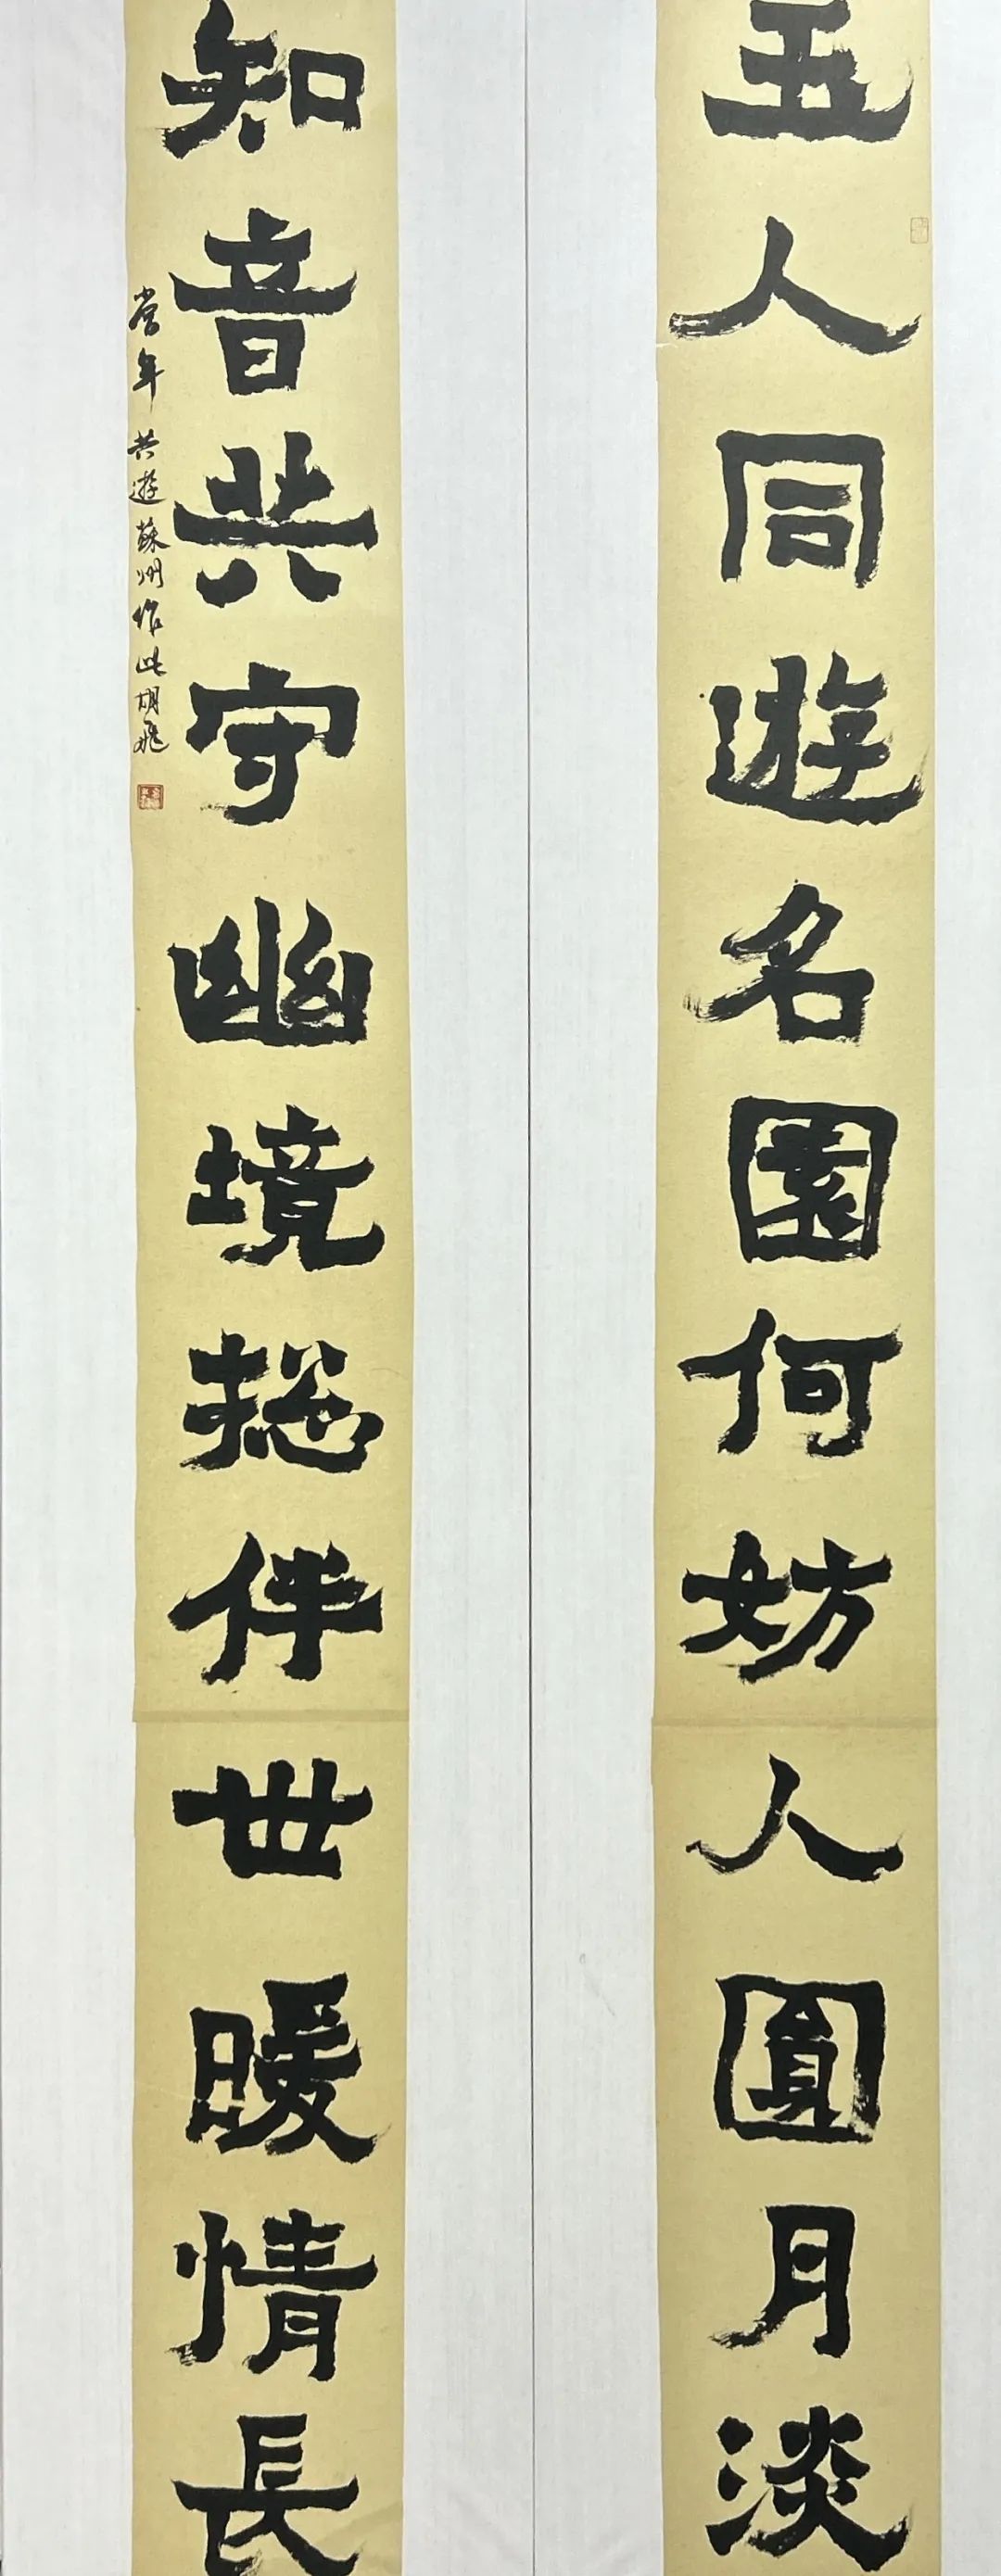 五人同遊名園何妨人圓月淡
知音共守幽境総伴世暖情長
當年共遊蘇州作此胡飛